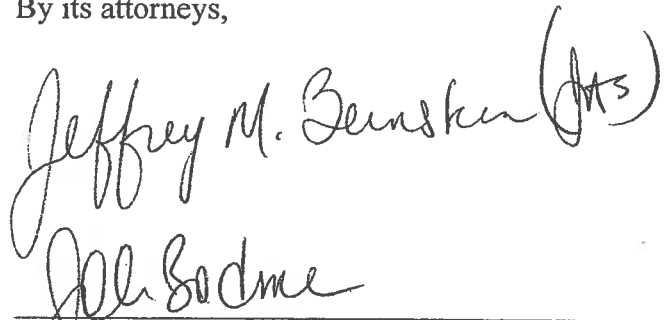 By its attorneys,
Jeffrey M. Bernstein